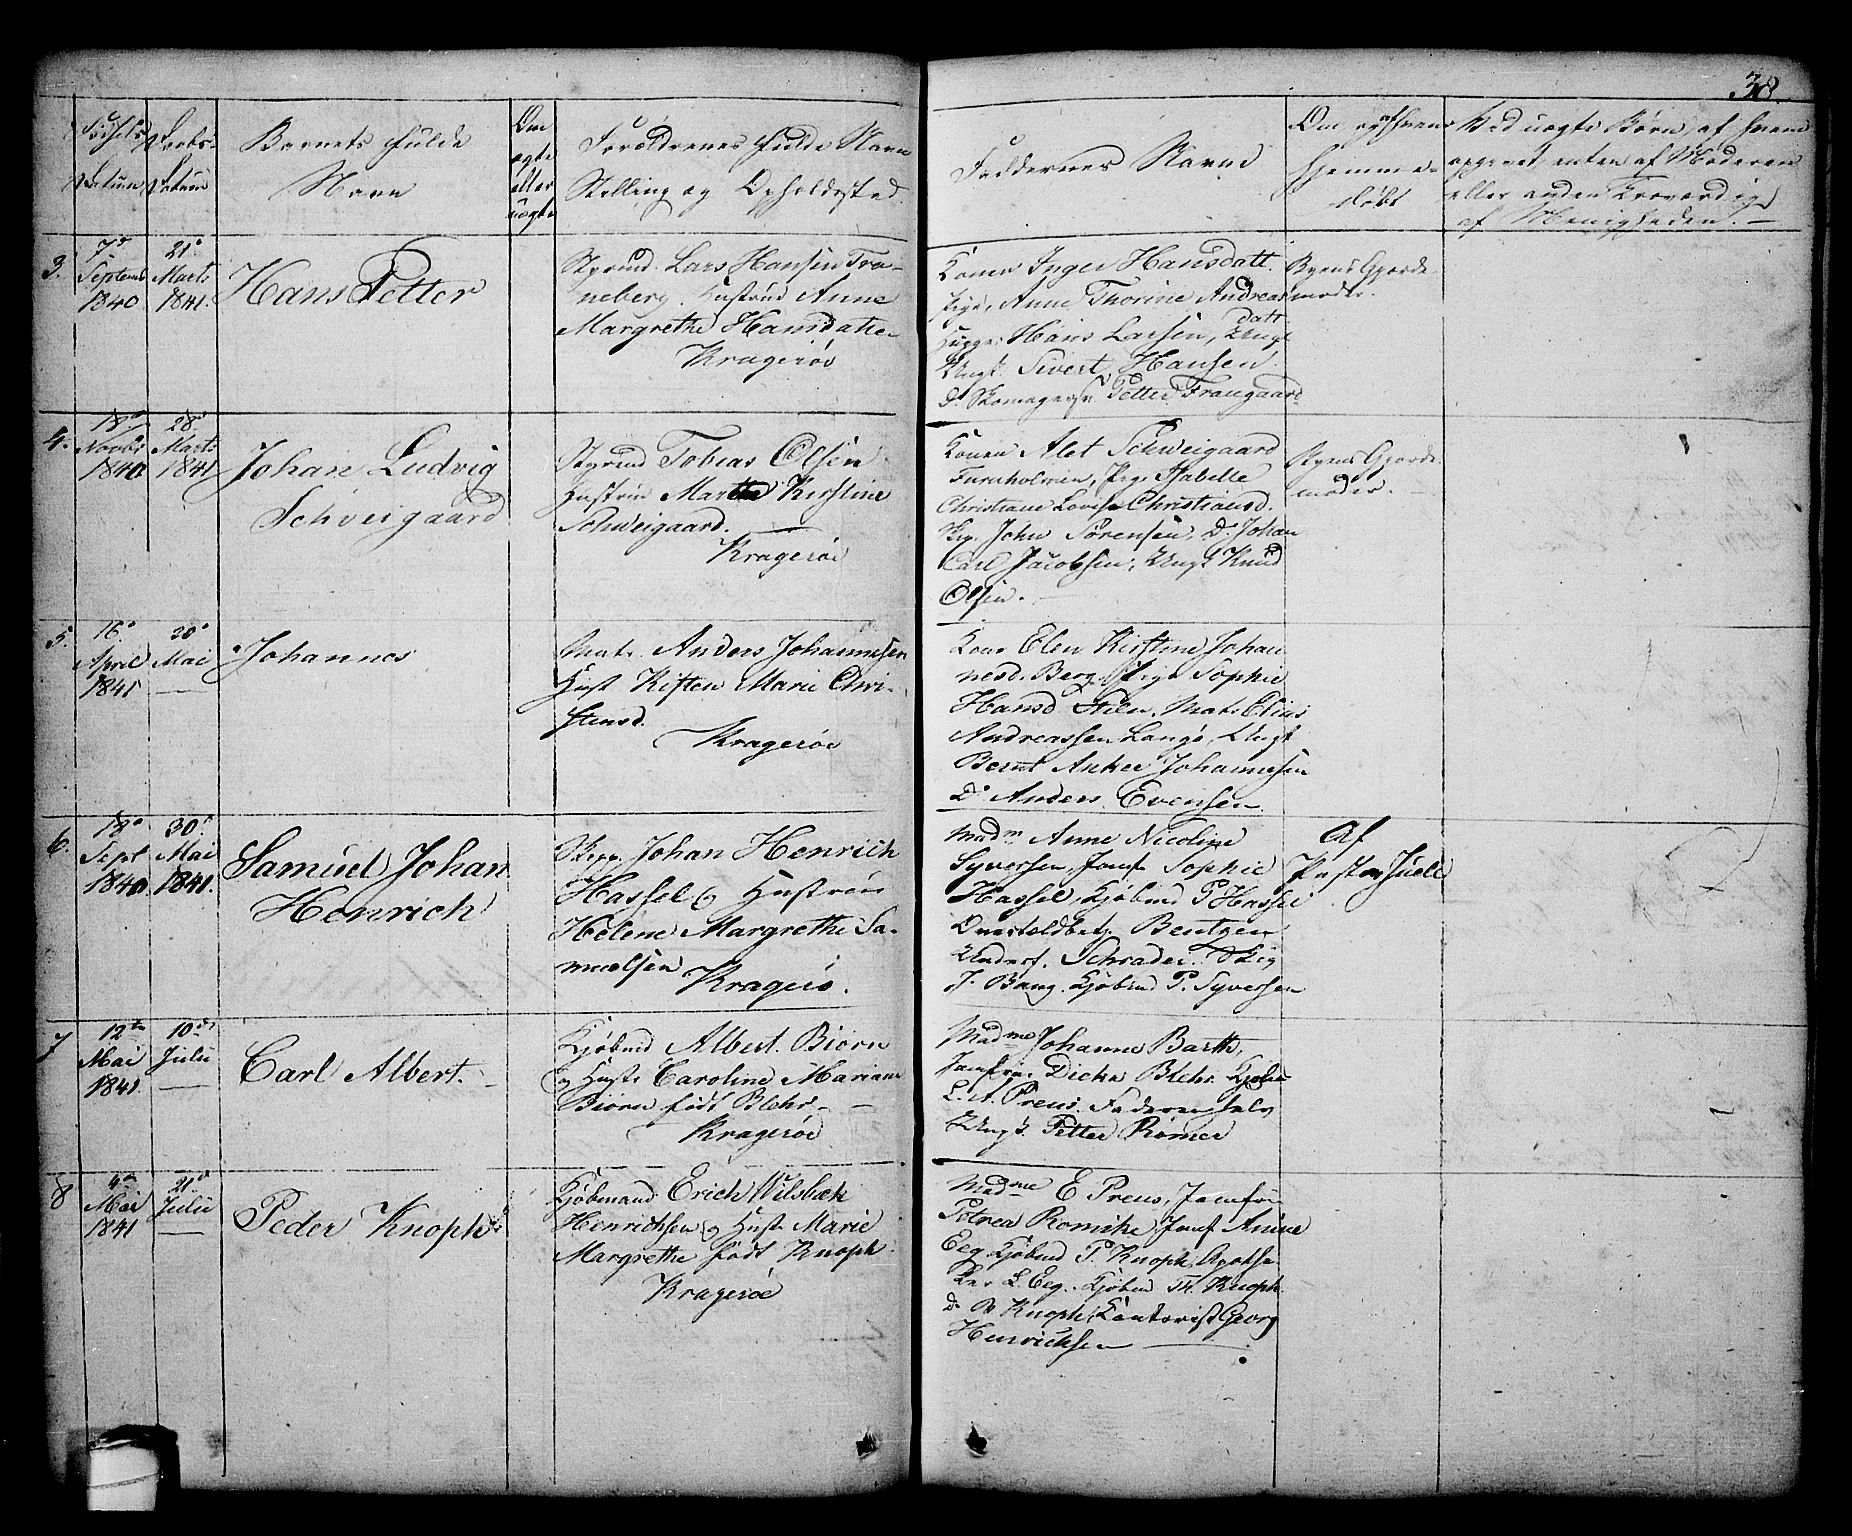 38.
Fødsels Datum
Daabs Datum
Barnets fulde Navn
Om ægte eller uægte
Forældrenes fulde Navn
Stilling og Opholdssted.
Faddernes Navne
Om og af hvem hjemme-
døbt
Ved uægte Børn, af hvem
opgivet, enten af Moderen
eller anden Troværdig
af Menigheden. —
3.
7de
Septemb
1840
21de
Marts
1841.
Hans Petter
Styrmd. Lars Hansen Tra-
neberg. Hustrue Anne
Margrethe Hansdatter
Kragerøe
Konen Inger Hansdatt.
Pige, Anne Thorine Andreas-
datt
Hans Larsen, Ungk
Ungk. Sivert Hansen
Do Skomagersv. Petter Frougaard
Byens Gjorde-
moder.
4.
18de
Novbr
1840
28de
Marts
1841
Johan Ludvig
Schveigaard
Styrmd Tobias Olsen
Hustrue Martha Kirstine
Schweigaard.
Kragerøe
Konen Alet Schweigaard
Furuholmen, Pige Isabelle
Christiane Lovise Christiansd.
John Sørensen, Do Johan
Carl Jacobsen, Ungk Knud
Olsen.
Byens Gjorde-
moder.
5.
16de
April
1841
20de
Mai
—
Johannes
Mats. Anders Johannesen
Hust Kisten Marie Chri-
stensd.
Kragerøe
Kone Elen Kirstine Johan
nesd. Berg, Pige Sophie
Hansd Stilen, Mats Elias
Andreassen Langø, Ungk
Bernt Anker Johannesen
Do Anders Evensen
6.
18de
Sept
1840
30de
Mai
1841.
Samuel Johan
Henrich
Skipp. Johan Henrich
Hassel og Hustrue
Helene Margrethe Sa-
muelsen
Kragerø.
Madm Anne Nicoline
Syversen, Jomf Sophie
Hassel, Kjøbmd P Hassel
Overtoldbetj. Bentzen
Schrader.
J. Bang. Kjøbmd P. Syversen
Af
Pastor Juell
7
12te
Mai
1841.
10de
Julii
—
Carl Albert. —
Kjøbmd Albert Biørn
og Hust. Caroline Mariane
Biørn født Blehr. —
Kragerøe
Madme Johanne Barth,
Jomfru Dicka Blehr. Kjøbm
L. A. Preus. Faderen selv
Ungk. Petter Rømer
8
4de
Mai
1841
21de
Julii
—
Peder Knoph
Kjøbmand Erich Vilsbæk
Henrichsen og Hust. Marie
Margrethe født Knoph
Kragerøe
Madme E Preus, Jomfru
Petrea Romcke, Jomf Anine
Eeg Kjøbmd P. Knoph, Apothe-
ker L. Eeg. Kjøbmd Th. Knoph
do Knoph, Kontorist Georg
Henrichsen —